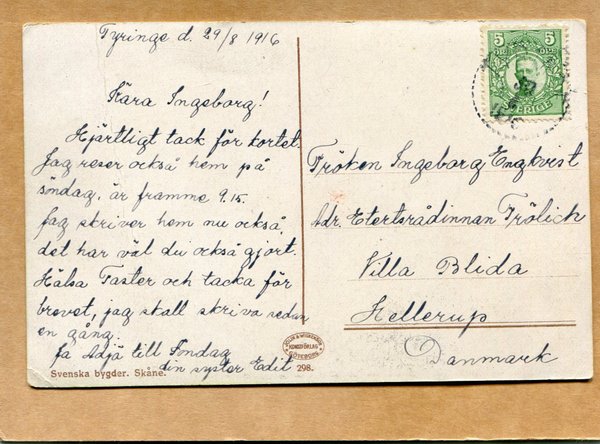 Tyringe d. 29/8 1916
Kära Ingeborg!
Hjärtligt tack för kortet.
Jag reser också hem på
söndag, är framme 9.15.
Jag skriver hem nu också,
det har väl du också gjort.
Hälsa Faster och tacka för
brevet, jag skall skriva sedan
en gång.
Ja Adjö till Söndag
din syster Edit
Svenska bygder. Skåne.
298.
KONSTFÖRLAG
GÖTEBORG
5 5
SVERIGE
Fröken Ingeborg Engkvist
Adr. Etertsrådinnan Frölich
Villa Blida
Hellerup
Danmark